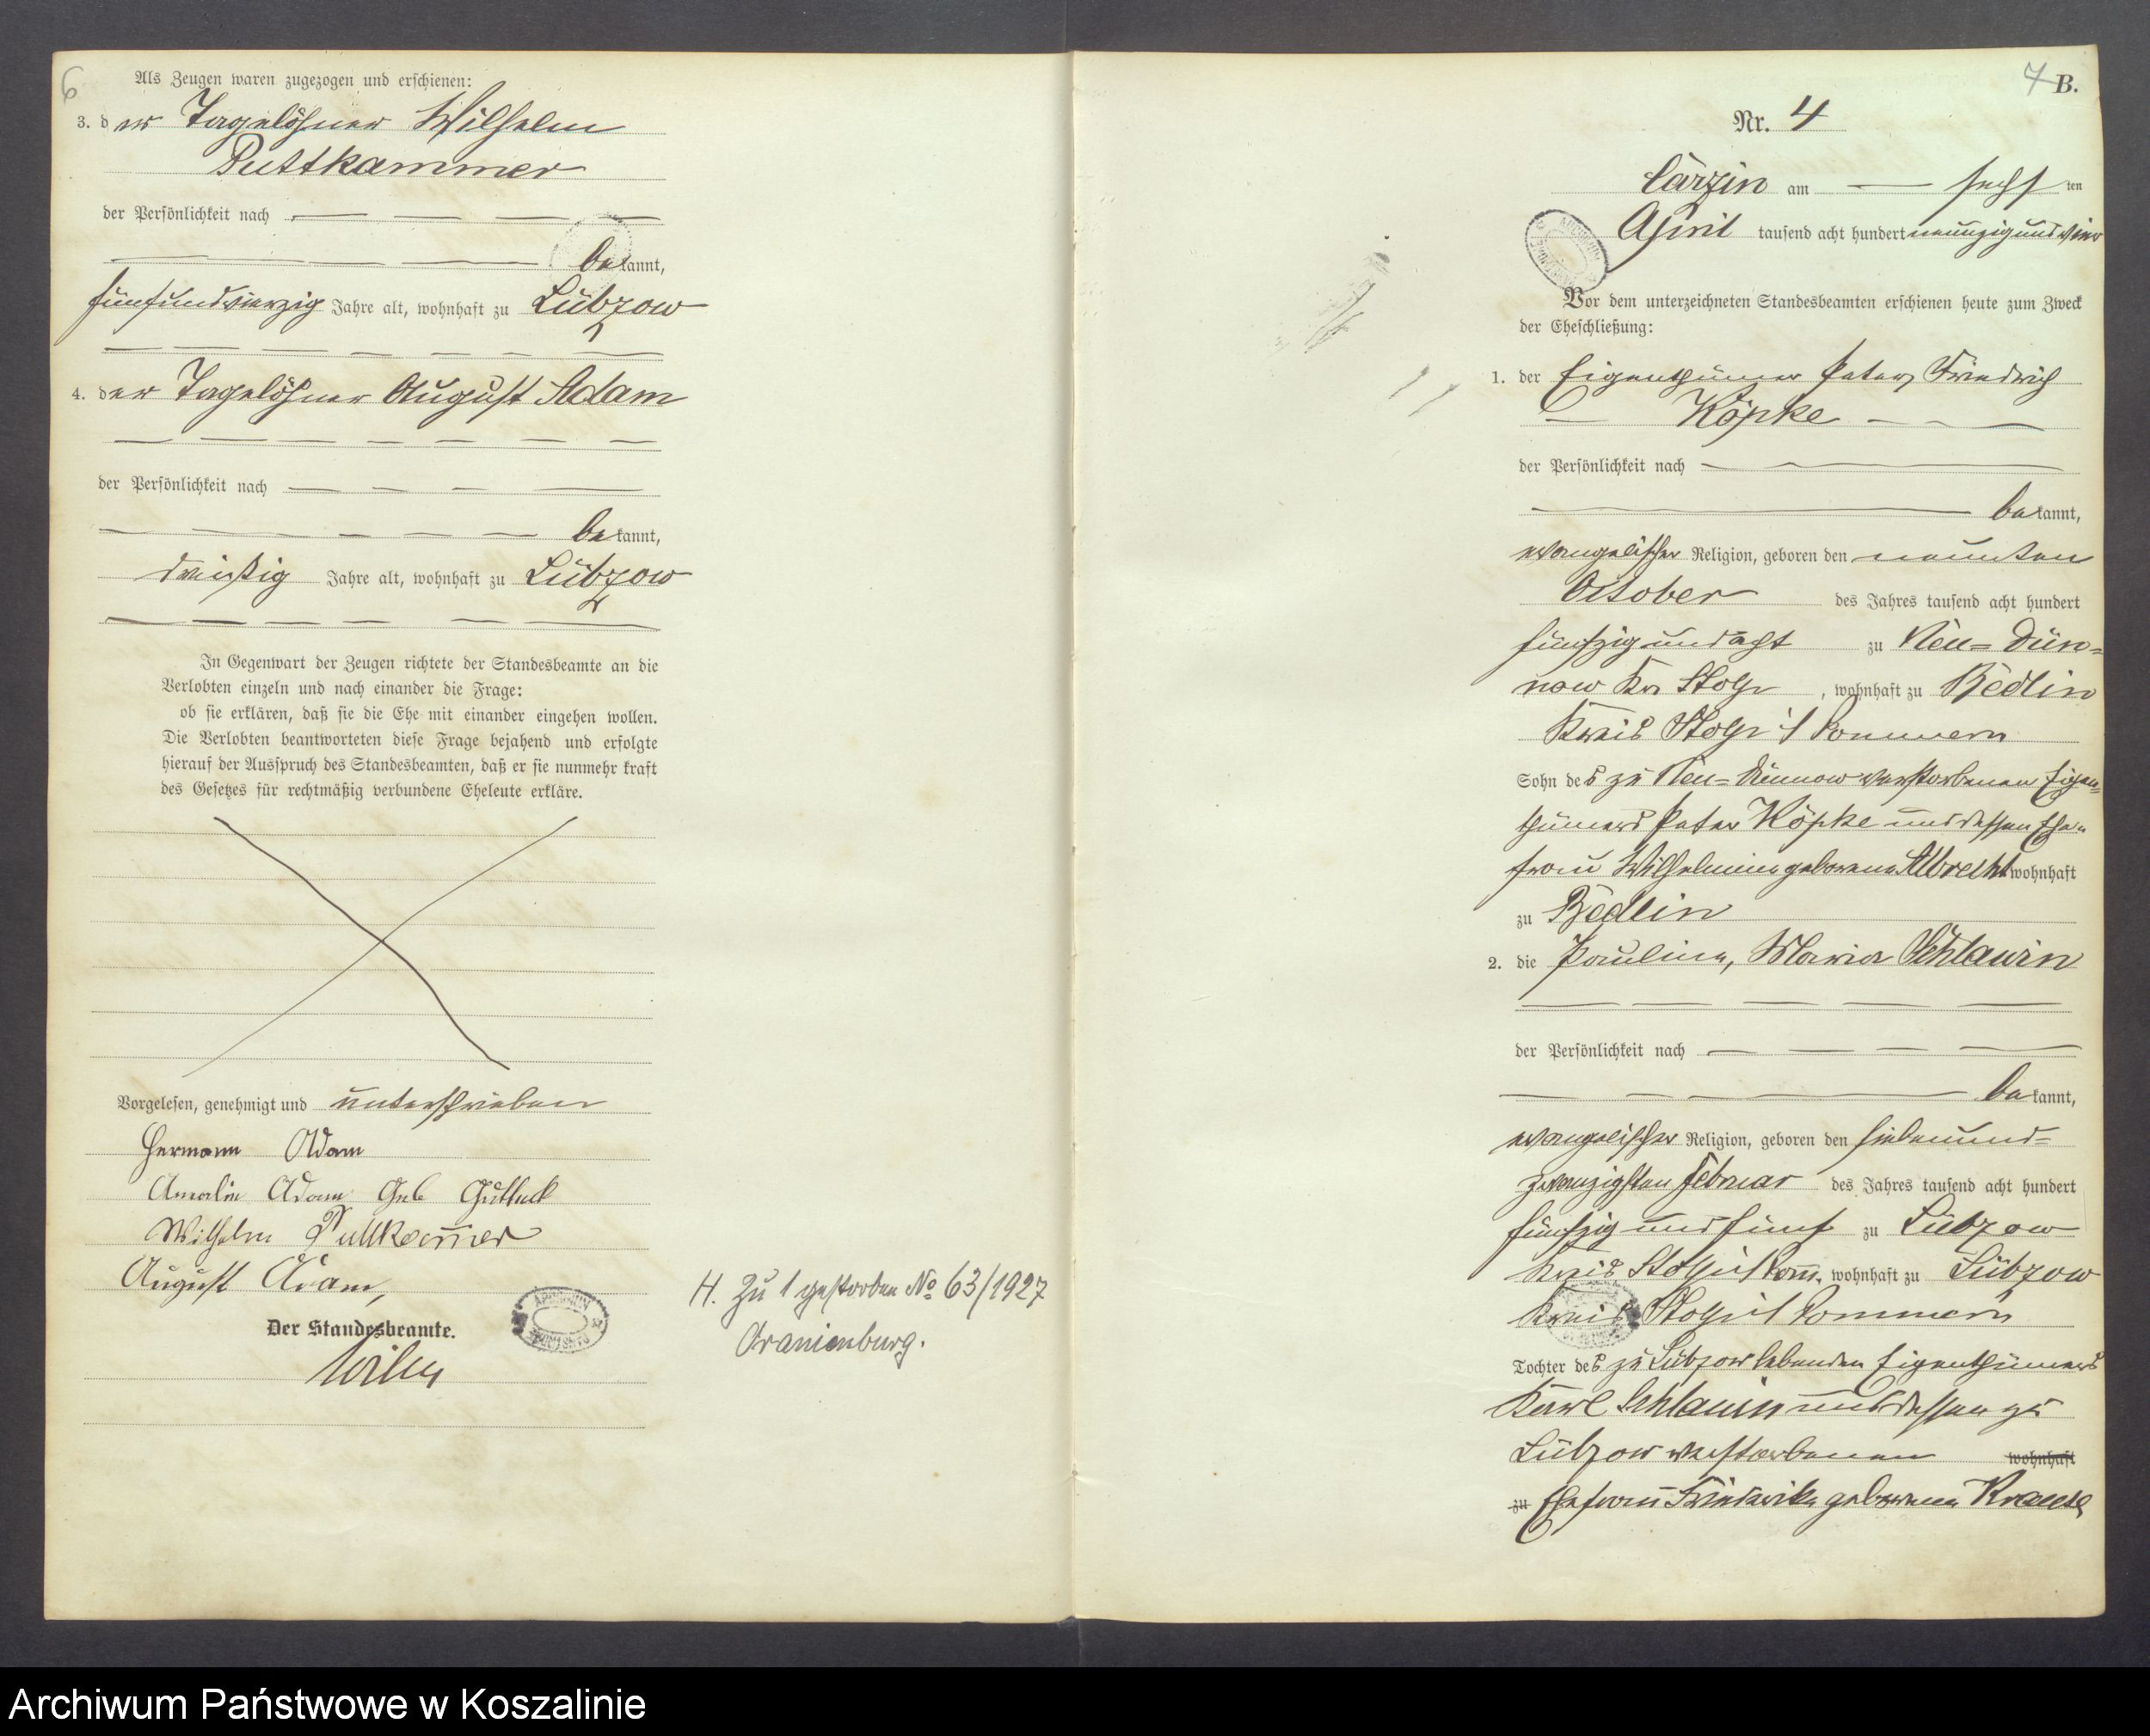 6
Als Zeugen waren zugezogen und erschienen:
3. der Tagelöhner Wilhelm
Puttkammer
der Persönlichkeit nach
bekannt,
fünfundvierzig Jahre alt, wohnhaft zu Lübzow
4. der Tagelöhner August Adam
der Persönlichkeit nach
bekannt,
dreißig Jahre alt, wohnhaft zu Lübzow
In Gegenwart der Zeugen richtete der Standesbeamte an die
Verlobten einzeln und nach einander die Frage:
ob sie erklären, daß sie die Ehe mit einander eingehen wollen.
Die Verlobten beantworteten diese Frage bejahend und erfolgte
hierauf der Ausspruch des Standesbeamten, daß er sie nunmehr kraft
des Gesetzes für rechtmäßig verbundene Eheleute erkläre.
Vorgelesen, genehmigt und unterschrieben
Hermann Adam
Amalie Adam Geb
Wilhelm Puttkam̄er
August Adam,
Der Standesbeamte.
H. Zu 1 gestorben No 63/1927
Oranienburg.
7 B.
Nr. 4
Carzin am sechsten
April tausend acht hundert neunzig und vier
Vor dem unterzeichneten Standesbeamten erschienen heute zum Zweck
der Eheschließung:
1. der Eigenthümer Peter, Friedrich
Köpke
der Persönlichkeit nach
bekannt,
evangelischer Religion, geboren den neunten
October des Jahres tausend acht hundert
fünfzig und acht zu Neu=Dün=
now Kr. Stolp, wohnhaft zu Bedlin
Kreis Stolp i/ Pommern
Sohn des zu Neu=Dünnow verstorbenen Eigen=
thümers Peter Köpke und dessen Ehe=
frau Wilhelmine geborene Albrecht wohnhaft
zu Bedlin
2. die Pauline, Marie Schlawin
der Persönlichkeit nach
bekannt,
evangelischer Religion, geboren den siebenund=
zwanzigsten Februar des Jahres tausend acht hundert
fünfzig und fünf zu Lübzow
Kreis Stolp i/ Pom̄. wohnhaft zu Lübzow
Kreis Stolp i/ Pommern
Tochter des zu Lübzow lebenden Eigenthümers
Karl Schlawin und dessen zu
Lübzow verstorbenen wohnhaft
zu Ehefrau Friederike geborene Krause
Archiwum Państwowe w Koszalinie